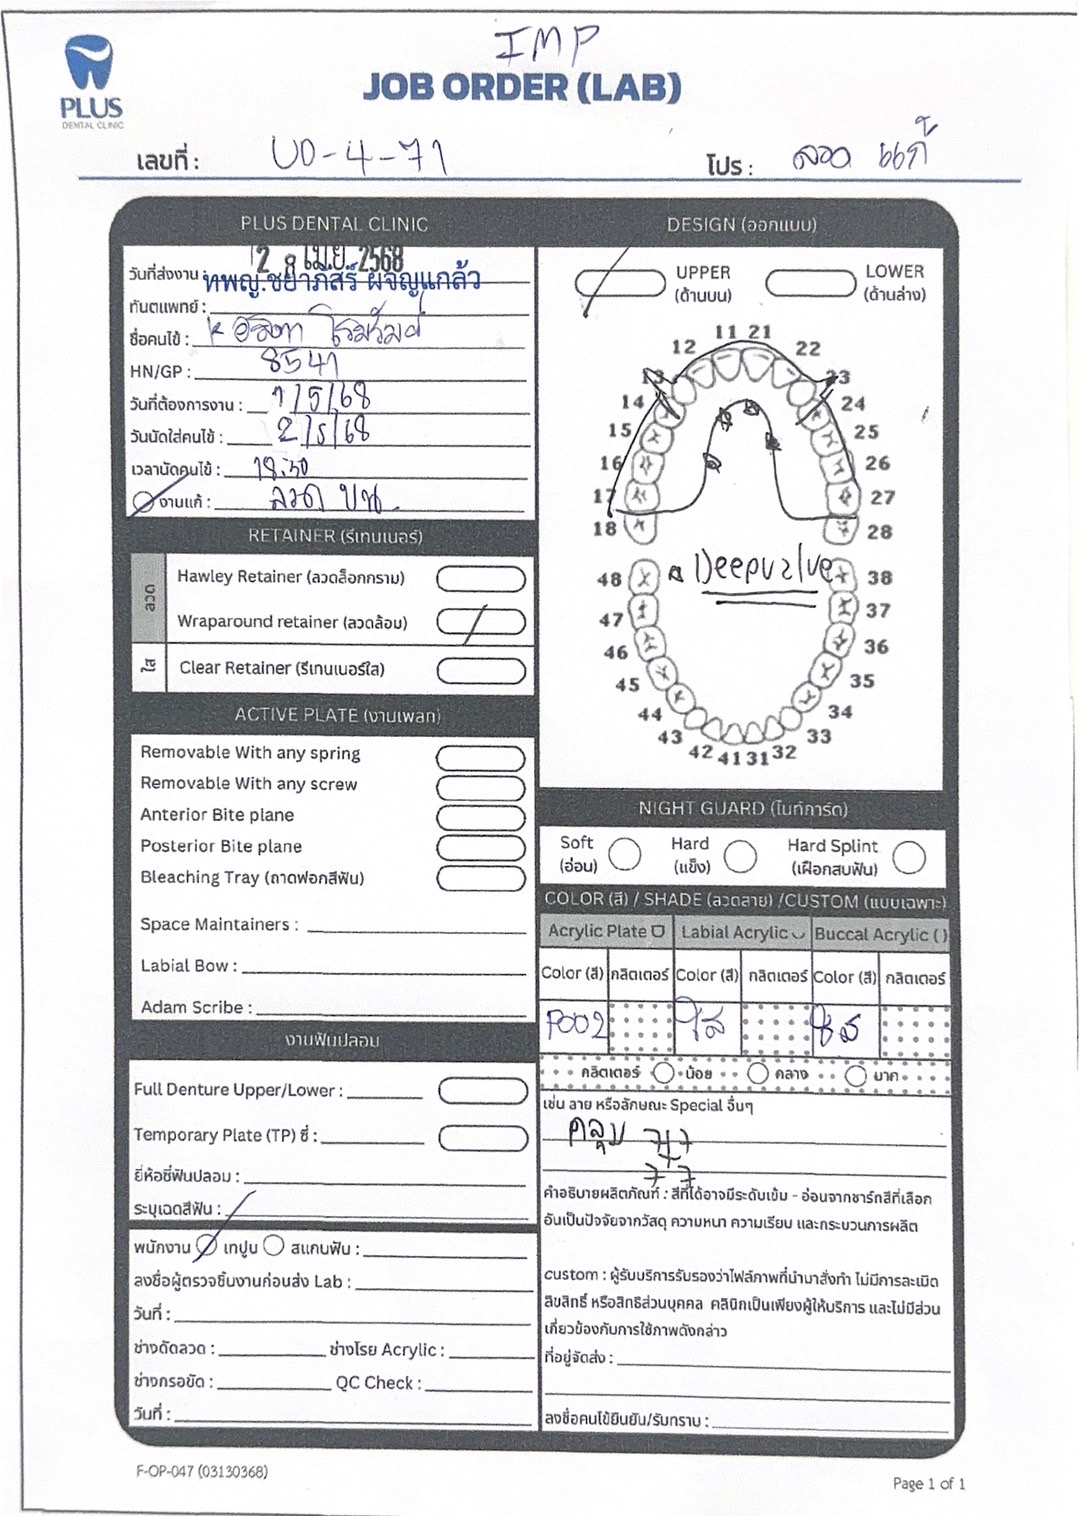 IMP
PLUS
DENTAL CLINIC
JOB ORDER (LAB)
เลขที่ : UD-4-71
โปร : ลวด แก้
PLUS DENTAL CLINIC
วันที่ส่งงาน : 2 8 เม.ย. 2568
ทันตแพทย์ : ทพญ.ชยาภิสร์ ผจญแกล้ว
ชื่อคนไข้ :
HN/GP : 8541
วันที่ต้องการงาน : 1/5/68
วันนัดใส่คนไข้ : 2/5/68
เวลานัดคนไข้ : 18.30
งานแก้ : ลวด บน
RETAINER (รีเทนเนอร์)
ลวด
Hawley Retainer (ลวดล็อกกราม)
Wraparound retainer (ลวดล้อม)
ใส
Clear Retainer (รีเทนเนอร์ใส)
ACTIVE PLATE (งานเพลท)
Removable With any spring
Removable With any screw
Anterior Bite plane
Posterior Bite plane
Bleaching Tray (ถาดฟอกสีฟัน)
Space Maintainers :
Labial Bow :
Adam Scribe :
งานฟันปลอม
Full Denture Upper/Lower :
Temporary Plate (TP) ซี่ :
ยี่ห้อซี่ฟันปลอม :
ระบุเฉดสีฟัน :
พนักงาน เทปูน สแกนฟัน :
ลงชื่อผู้ตรวจชิ้นงานก่อนส่ง Lab :
วันที่ :
ช่างดัดลวด : ช่างโรย Acrylic :
ช่างกรอขัด : QC Check :
วันที่ :
DESIGN (ออกแบบ)
UPPER
(ด้านบน)
LOWER
(ด้านล่าง)
11 21
12 22
13 23
14 24
15 25
16 26
17 27
18 28
48 Deepvalve 38
47 37
46 36
45 35
44 34
43 33
42 41 31 32
NIGHT GUARD (ไนท์การ์ด)
Soft
(อ่อน)
Hard
(แข็ง)
Hard Splint
(เฝือกสบฟัน)
COLOR (สี) / SHADE (ลวดลาย) /CUSTOM (แบบเฉพาะ)
Acrylic Plate Labial Acrylic Buccal Acrylic ( )
Color (สี) กลิตเตอร์ Color (สี) กลิตเตอร์ Color (สี) กลิตเตอร์
P002 ใส ใส
กลิตเตอร์ น้อย กลาง มาก
เช่น ลาย หรือลักษณะ Special อื่นๆ
คลุม 7+7
7 7
คำอธิบายผลิตภัณฑ์ : สีที่ได้อาจมีระดับเข้ม - อ่อนจากชาร์ทสีที่เลือก
อันเป็นปัจจัยจากวัสดุ ความหนา ความเรียบ และกระบวนการผลิต
custom : ผู้รับบริการรับรองว่าไฟล์ภาพที่นำมาสั่งทำ ไม่มีการละเมิด
ลิขสิทธิ์ หรือสิทธิส่วนบุคคล คลินิกเป็นเพียงผู้ให้บริการ และไม่มีส่วน
เกี่ยวข้องกับการใช้ภาพดังกล่าว
ที่อยู่จัดส่ง :
ลงชื่อคนไข้ยืนยัน/รับทราบ :
F-OP-047 (03130368)
Page 1 of 1